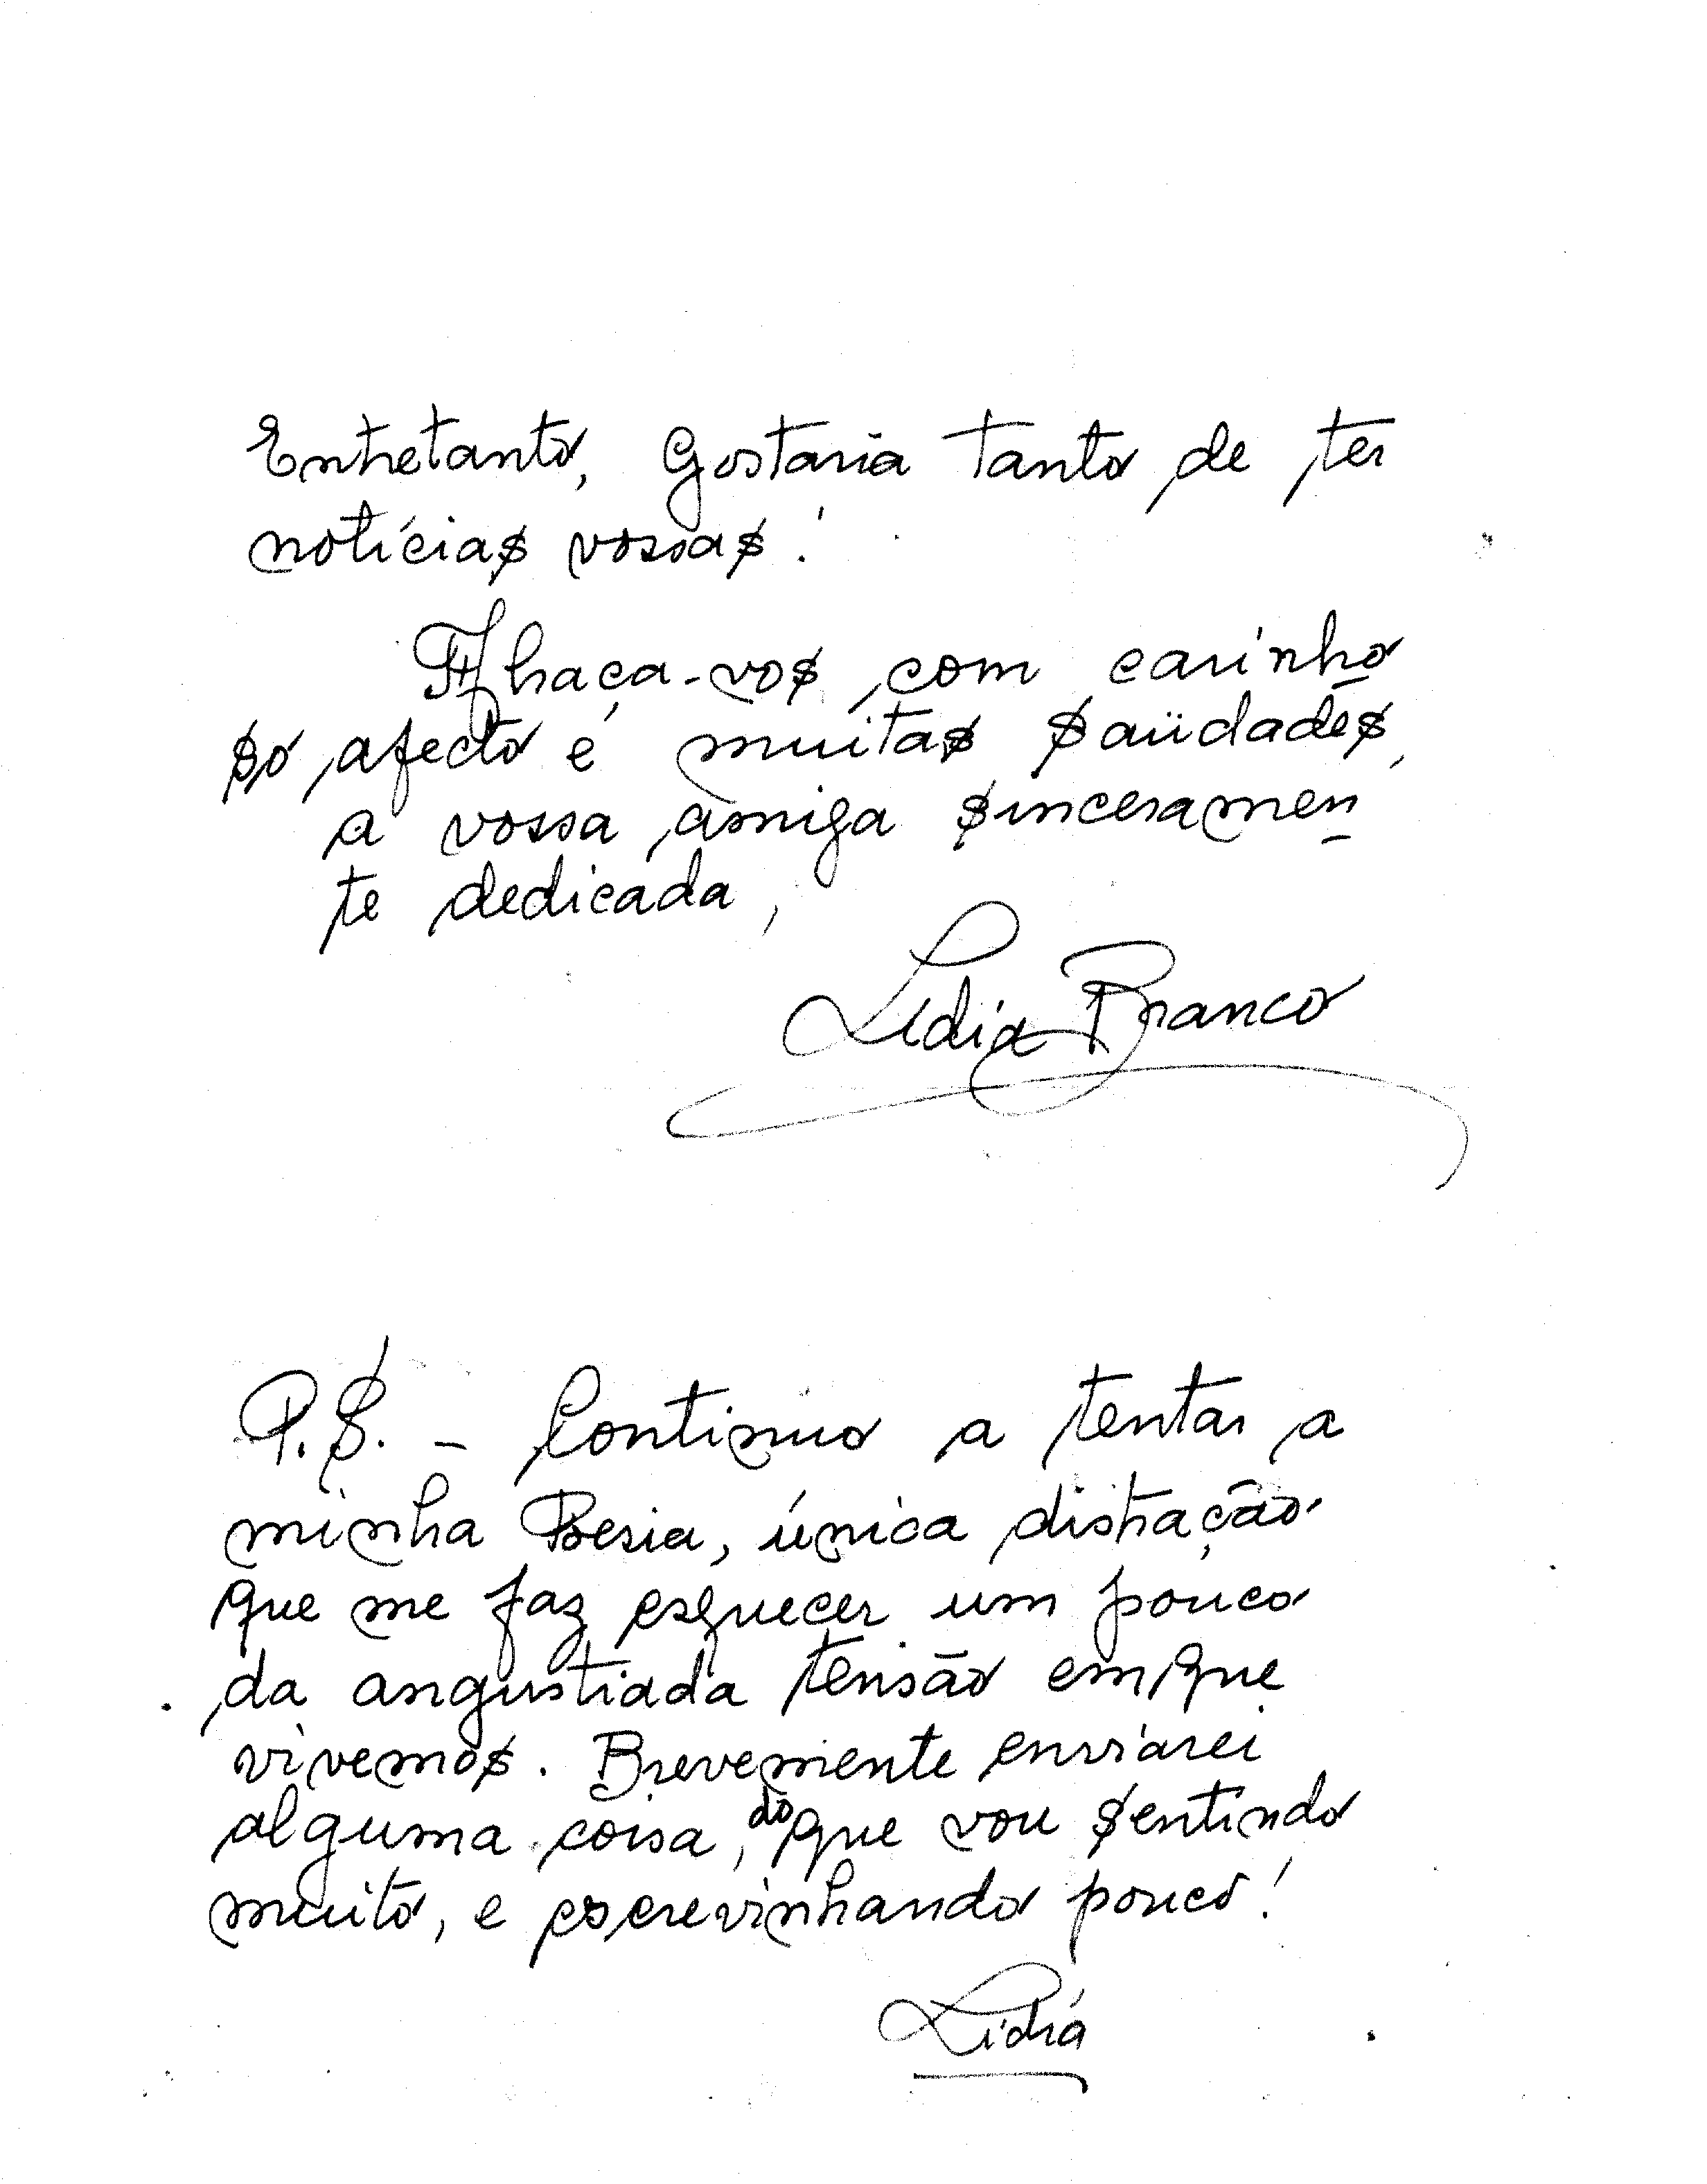 Entretanto, gostaria tanto de ter
notícias vossas!
Abraça-vos, com carinho
so afecto e muitas saüdades,
a vossa amiga sinceramen
te dedicada,
Lídia Branco
P.S. - Continuo a tentar a
minha Poesia, única distração
que me faz esquecer um pouco
da angustiada tensão em que
vivemos. Brevemente enviarei
alguma coisa, do que vou sentindo
muito, e escrevinhando pouco!
Lídia